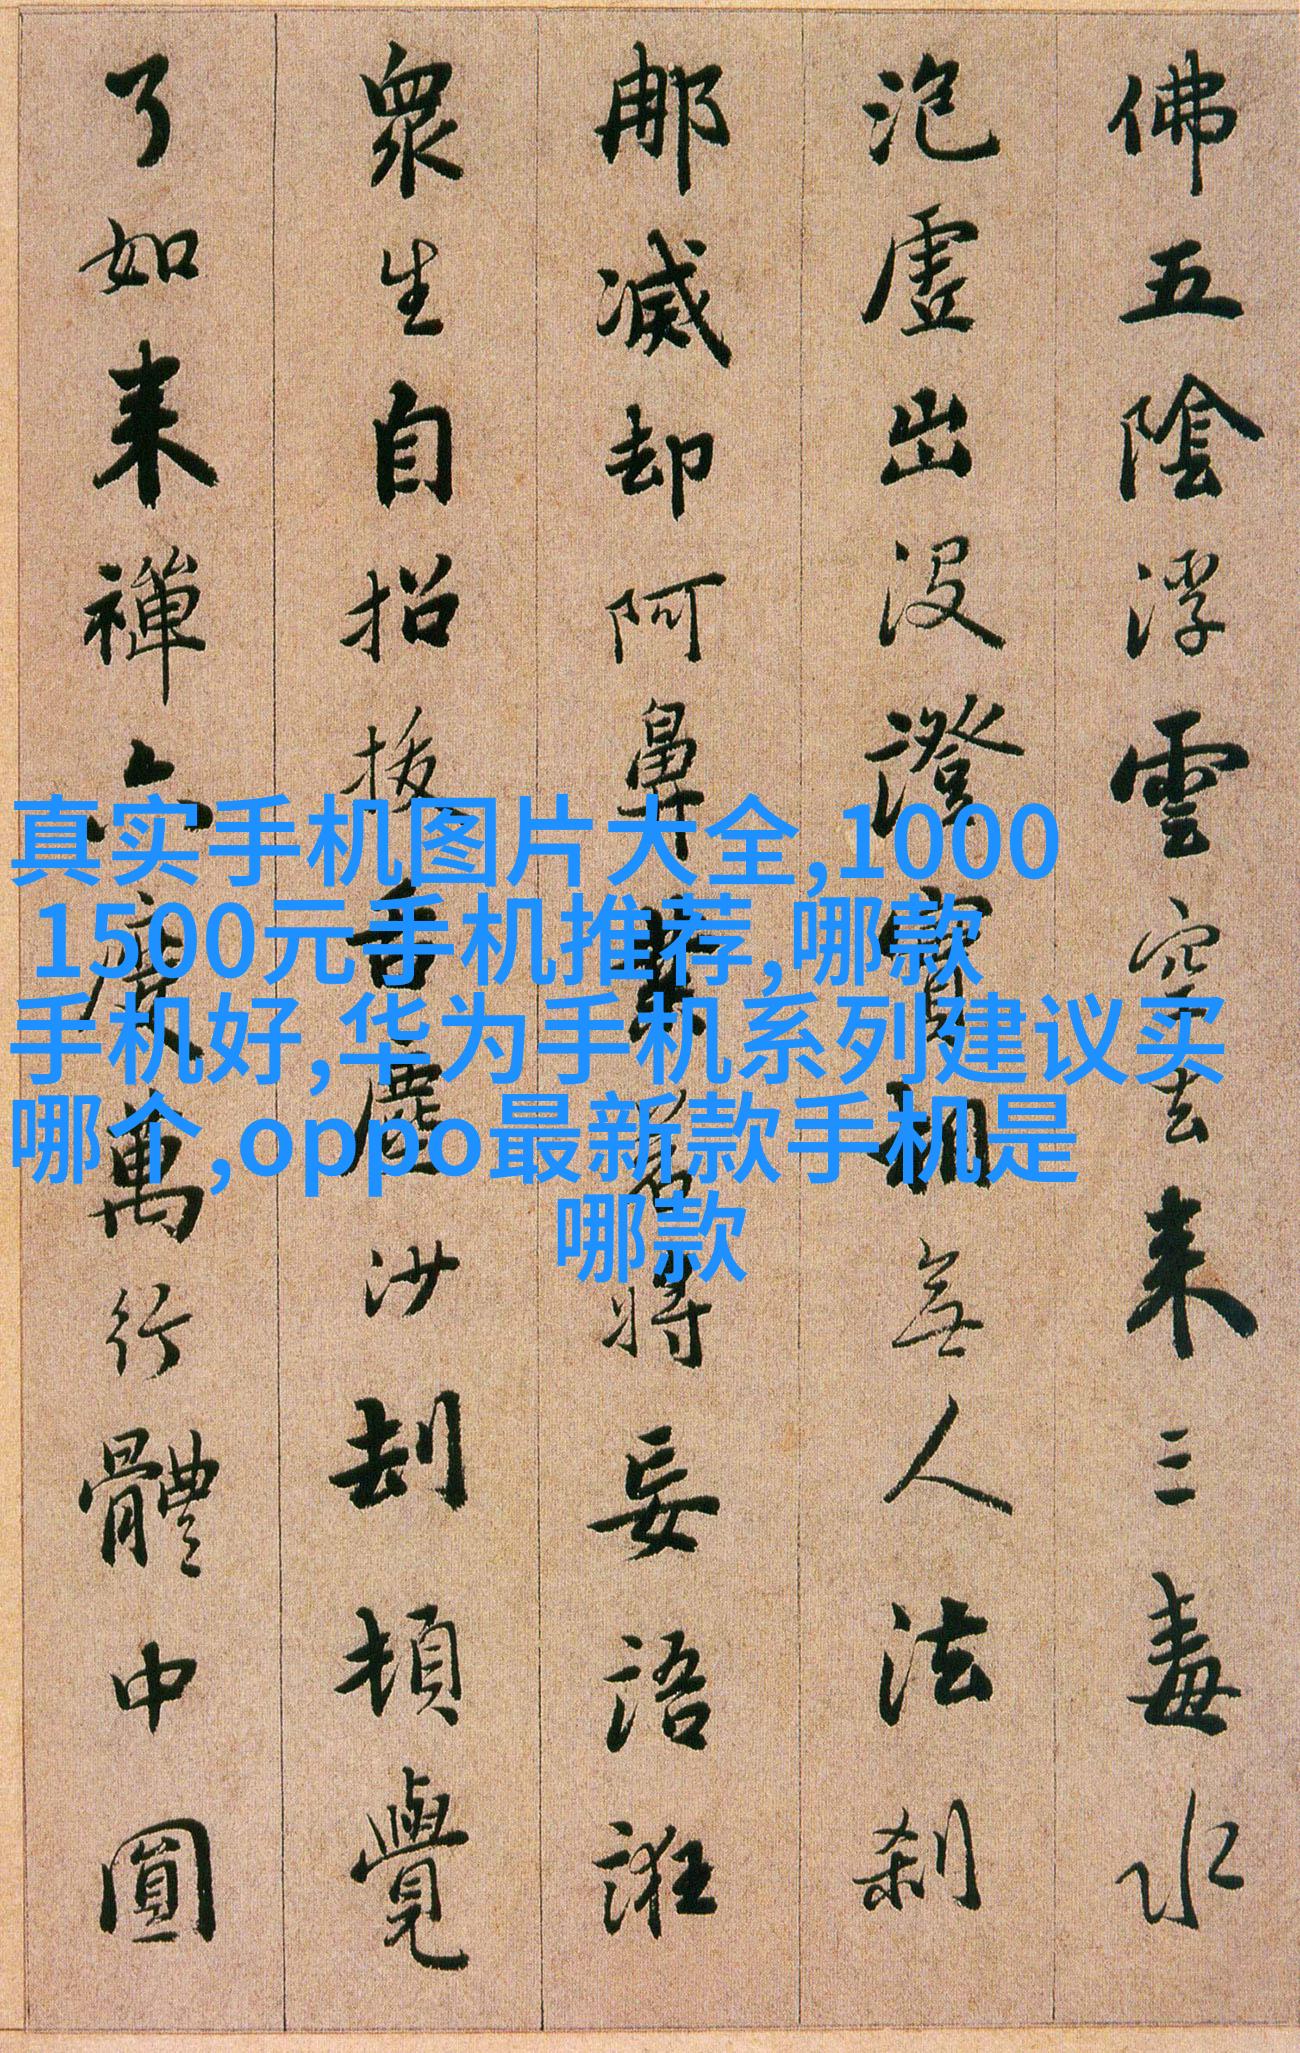 佛五陰浮雲空去来三毒水
泡虚出没證實相無人法刹
那滅却阿鼻業若將妄語誑
衆生自招拔舌塵沙刼頓覺
了如来禪六度萬行體中圓
真实手机图片大全,1000
1500元手机推荐,哪款
手机好,华为手机系列建议买
哪个,oppo最新款手机是
哪款